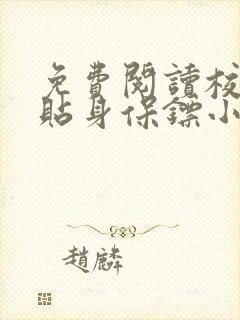 免費閱讀校
貼身保鏢小
趙麟